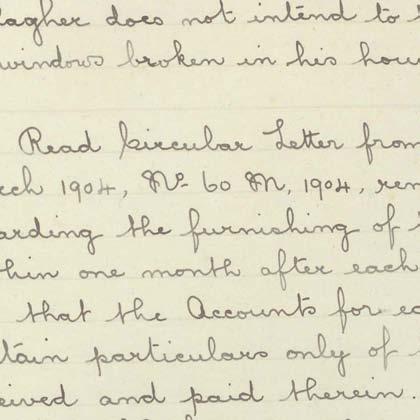 lagher does not intend to
windows broken in his hou
Read Circular Letter from
rch 1904, No. 60 M, 1904, rem
arding the furnishing of
thin one month after each
that the Accounts for ea
tain particulars only of
eived and paid therein